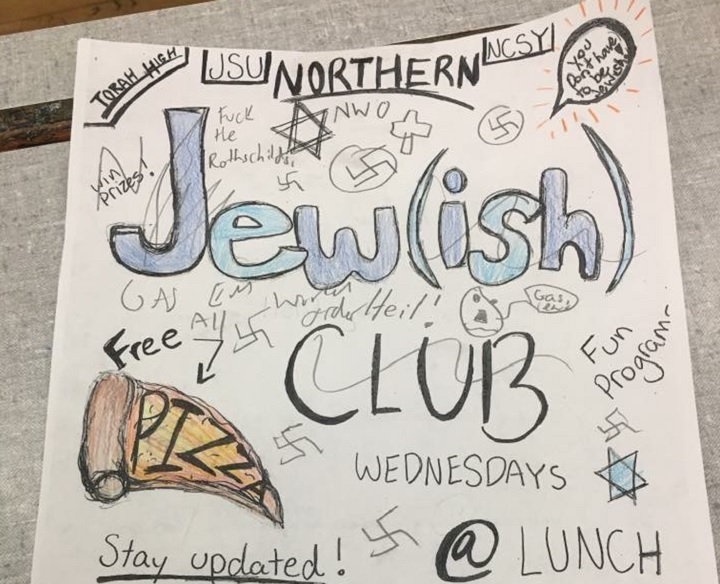 TORAH HIGH
JSU
NORTHERN
NCSY
You
Don't have
to be
Jewish!
Win
Prizes!
Fuck
the
Rothschilds
NWO
Jew(ish)
GAS EM
All
World
order Heil!
Gas
Free
PIZZA
CLUB
Fun
Program-
WEDNESDAYS
@ LUNCH
Stay updated!